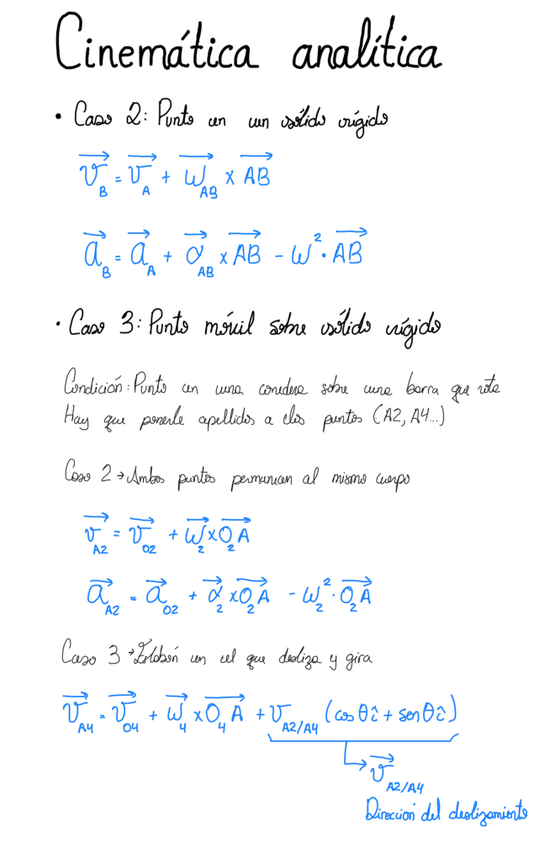 Cinemática analítica
• Caso 2: Punto en un sólido rígido
v⃗_B = v⃗_A + ω⃗_AB × AB⃗
a⃗_B = a⃗_A + α⃗_AB × AB⃗ - ω² · AB⃗
• Caso 3: Punto móvil sobre sólido rígido
Condición: Punto en una corredera sobre una barra que rota
Hay que ponerle apellidos a los puntos (A2, A4...)
Caso 2 → Ambos puntos permanecen al mismo cuerpo
v⃗_A2 = v⃗_O2 + ω⃗_2 × O_2A⃗
a⃗_A2 = a⃗_O2 + α⃗_2 × O_2A⃗ - ω_2² · O_2A⃗
Caso 3 → Eslabón en el que desliza y gira
v⃗_A4 = v⃗_O4 + ω⃗_4 × O_4A⃗ + v_A2/A4 (cosθî + senθî)
v⃗_A2/A4
Dirección del deslizamiento